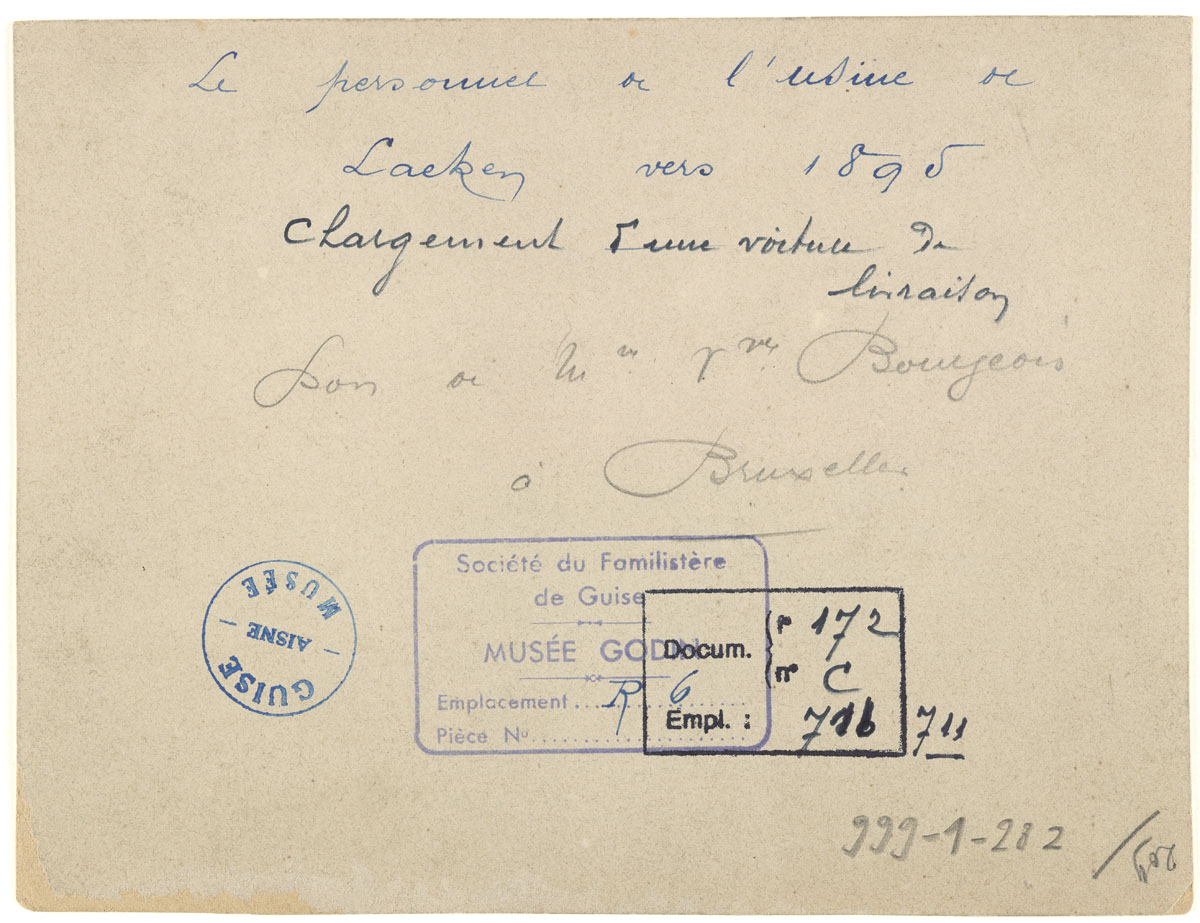 Le personnel de l'usine de
Laeken vers 1895
Chargement d'une voiture de
livraison
Don de Mme Vve Bourgeois
à Bruxelles
Société du Familistère
de Guise
MUSÉE GODIN
Emplacement R 6
Pièce No
Docum. r 172
n° C
Empl. : 711
MUSÉE
AISNE
GUISE
999-1-282